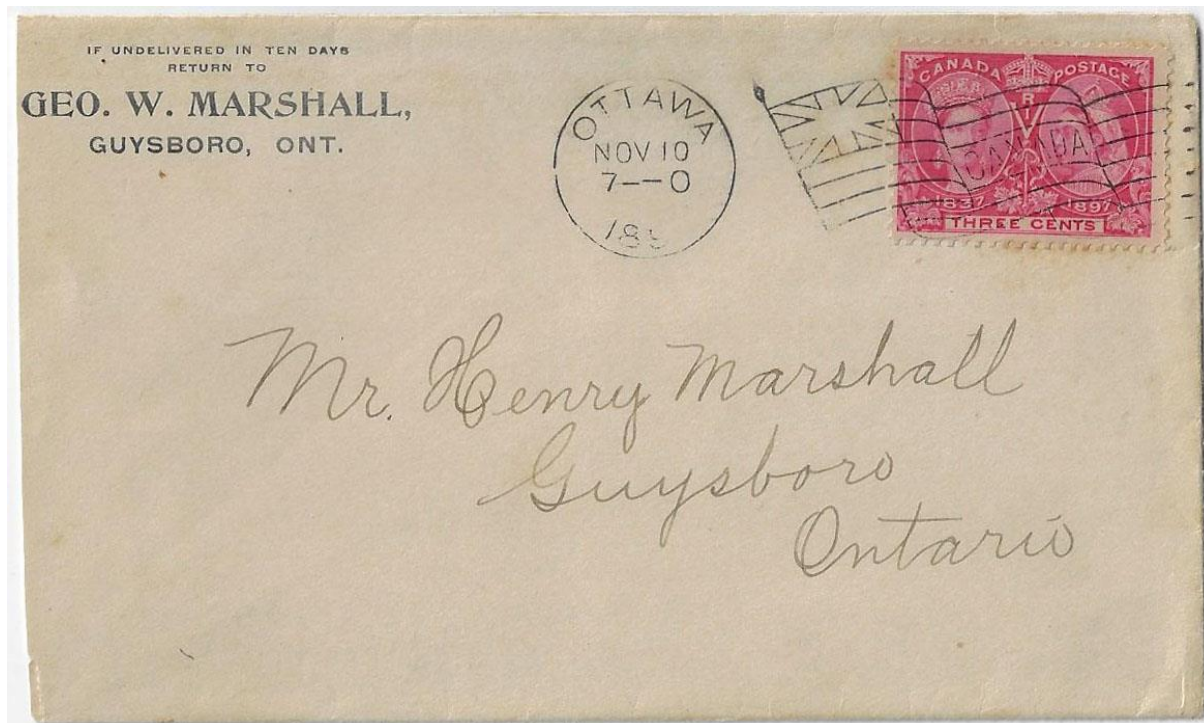 IF UNDELIVERED IN TEN DAYS
RETURN TO
GEO. W. MARSHALL,
GUYSBORO, ONT.
OTTAWA
NOV 10
7--0
CANADA POSTAGE
V R I
CANADA
1837 1897
THREE CENTS
Mr. Henry Marshall
Guysboro
Ontario